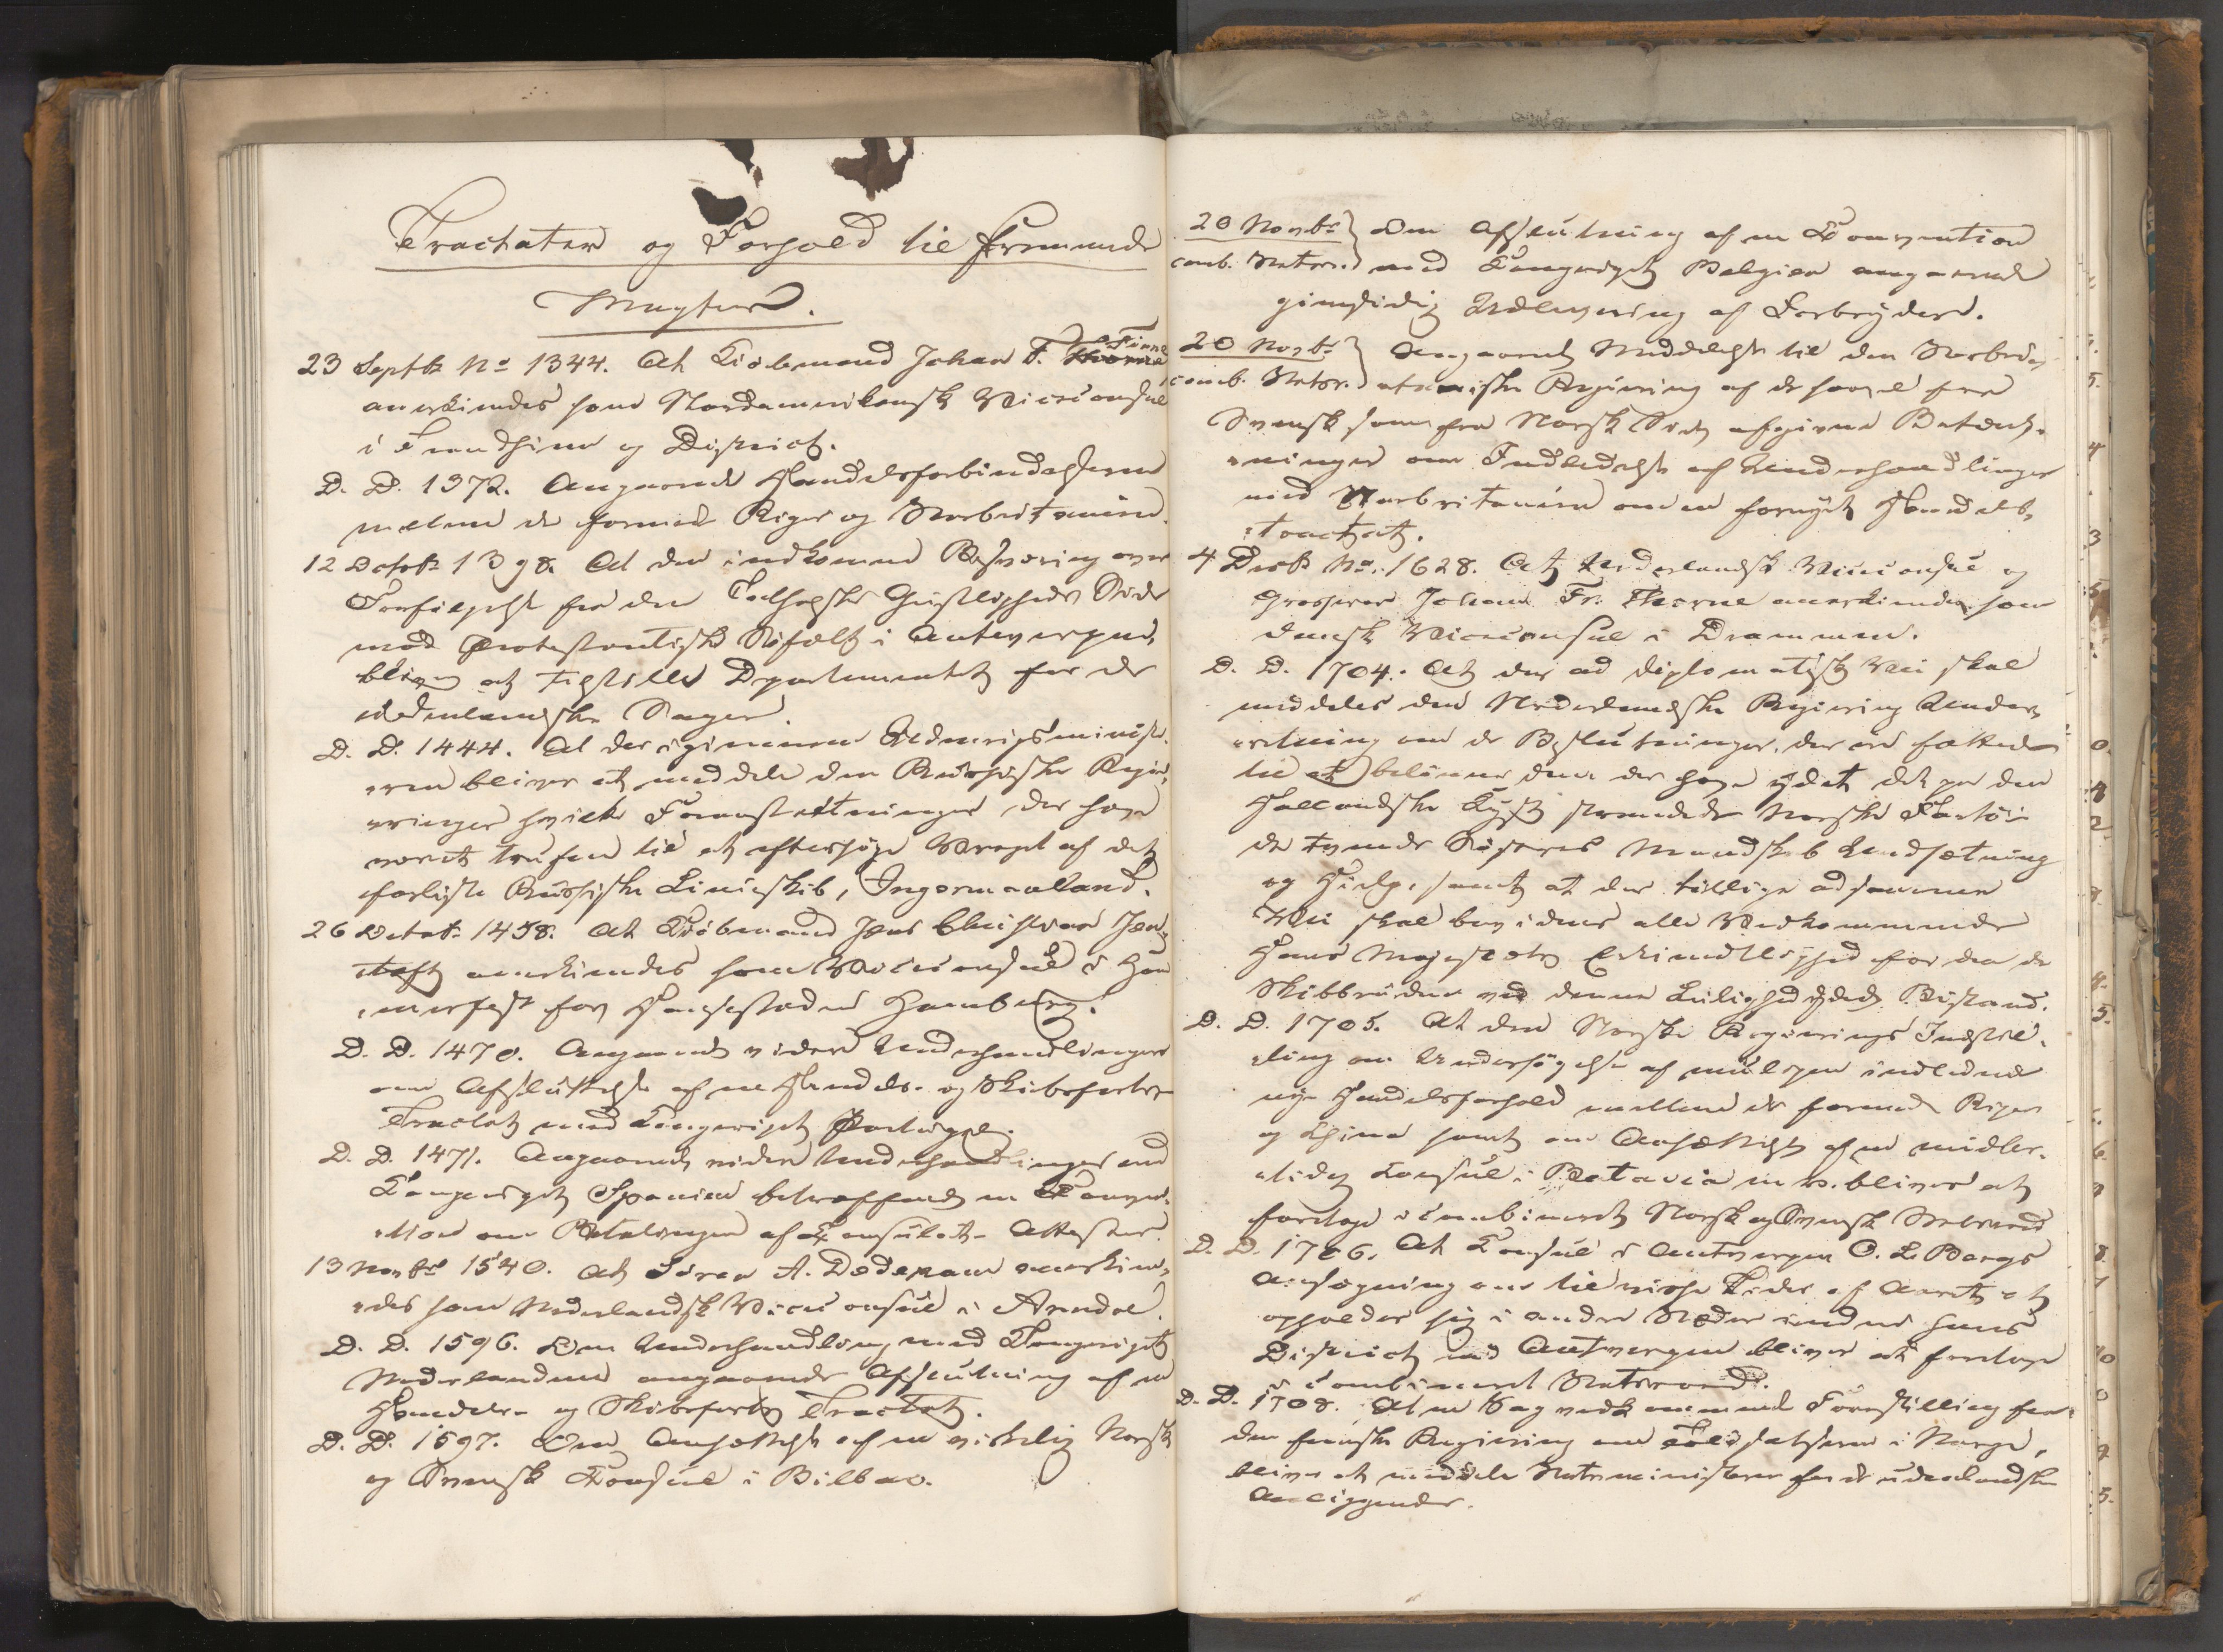 Tractater og Forhold til fremmede
Magter.
23 Septbr No 1344. At Kiöbmand Johan F. Finne
anerkiendes som Nordamerikansk Viceconsul
i Trondhiem og District.
D. D. 1372. Angaaende Handelsforbindelserne
mellem de forenede Riger og Storbritanien.
12 Octobr 1398. At den indkomne Besværing over
Forfölgelse fra den Catholske Geistligheds Side
mod protestantiske Söfolk i Antverpen,
bliver at tilstille Departementet for de
udenlandske Sager.
D. D. 1444. At der igiennem Udenrigsminist-
eren bliver at meddele den Russiske Regie-
ringer hvilke Foranstaltninger der have
været trufne til at eftersöge Vraget af det
forliste Russiske Linieskib, Ingermanland.
26 Octobr 1458. At Kiöbmand Jens Christian Jen-
toft anerkiendes som Viceconsul i Ham-
merfest for Hansestaden Hamburg.
D. D. 1470. Angaaende videre Underhandlinger
om Afsluttelse af en Handels- og Skibsfarts
Tractat med Kongeriget Portugal.
D. D. 1471. Angaaende videre Underhandlinger med
Kongeriget Spanien betræffende en Conven-
tion om Betalingen af Consulats-Attester.
13 Novbr 1540. At Sören A. Dedekam anerkien-
des som Nederlandsk Viceconsul i Arendal.
D. D. 1596. Om Underhandling med Kongeriget
Nederlandene angaaende Afslutning af en
Handels- og Skibsfarts Tractat.
D. D. 1597. Om Ansættelse af en virkelig Norsk
og Svensk Consul i Bilbao.
20 Novbr Om Afslutning af en Convention
comb. Statsr. med Kongeriget Belgien angaaende
giensidig Udlevering af Forbrydere.
20 Novbr Angaaende Meddelelse til den Storbri-
comb. Statsr. taniske Regiering af de saavel fra
Svensk som fra Norsk Side afgivne Betænk-
ninger om Indledelse af Underhandlinger
med Storbritanien om en fornyet Handels-
tractat.
4 Decbr No. 1628. At Nederlandsk Viceconsul og
Grosserer Johan Fr. Thorne anerkiendes som
dansk Viceconsul i Drammen.
D. D. 1704. At der ad diplomatisk Vei skal
meddeles den Nederlandske Regiering Under-
retning om de Beslutninger, der ere fattede
til at belönne dem der have ydet det paa den
Hollandske Kyst strandede Norske Fartöi
de tvende Söstres Mandskab Undsætning
og Hielp, samt at der tillige ad samme
Vei skal bevidnes alle Vedkommende
Hans Majestæts Erkiendtlighed for den de
Skibbrudne ved denne Leilighed ydede Bistand.
D. D. 1705. At den Norske Regierings Indstil-
ling om Undersögelse af muligen indledende
nye Handelsforhold mellem de forenede Riger
og China samt om Ansættelse af en midler-
tidig Consul i Batavia m. v. bliver at
foretage i combineret Norsk og Svensk Statsraad
D. D. 1706. At Consul i Antwerpen O. L. Bergs
Ansögning om til visse Tider af Aaret at
opholde sig i andre Stæder inden hans
District end Antwerpen bliver at foretage
i combineret Statsraad.
D. D. 1708. At en Sag vedkommende Forestilling fra
den franske Regiering om Toldsatserne i Norge,
bliver at meddele Statsministeren for de udenlandske
Anliggender.